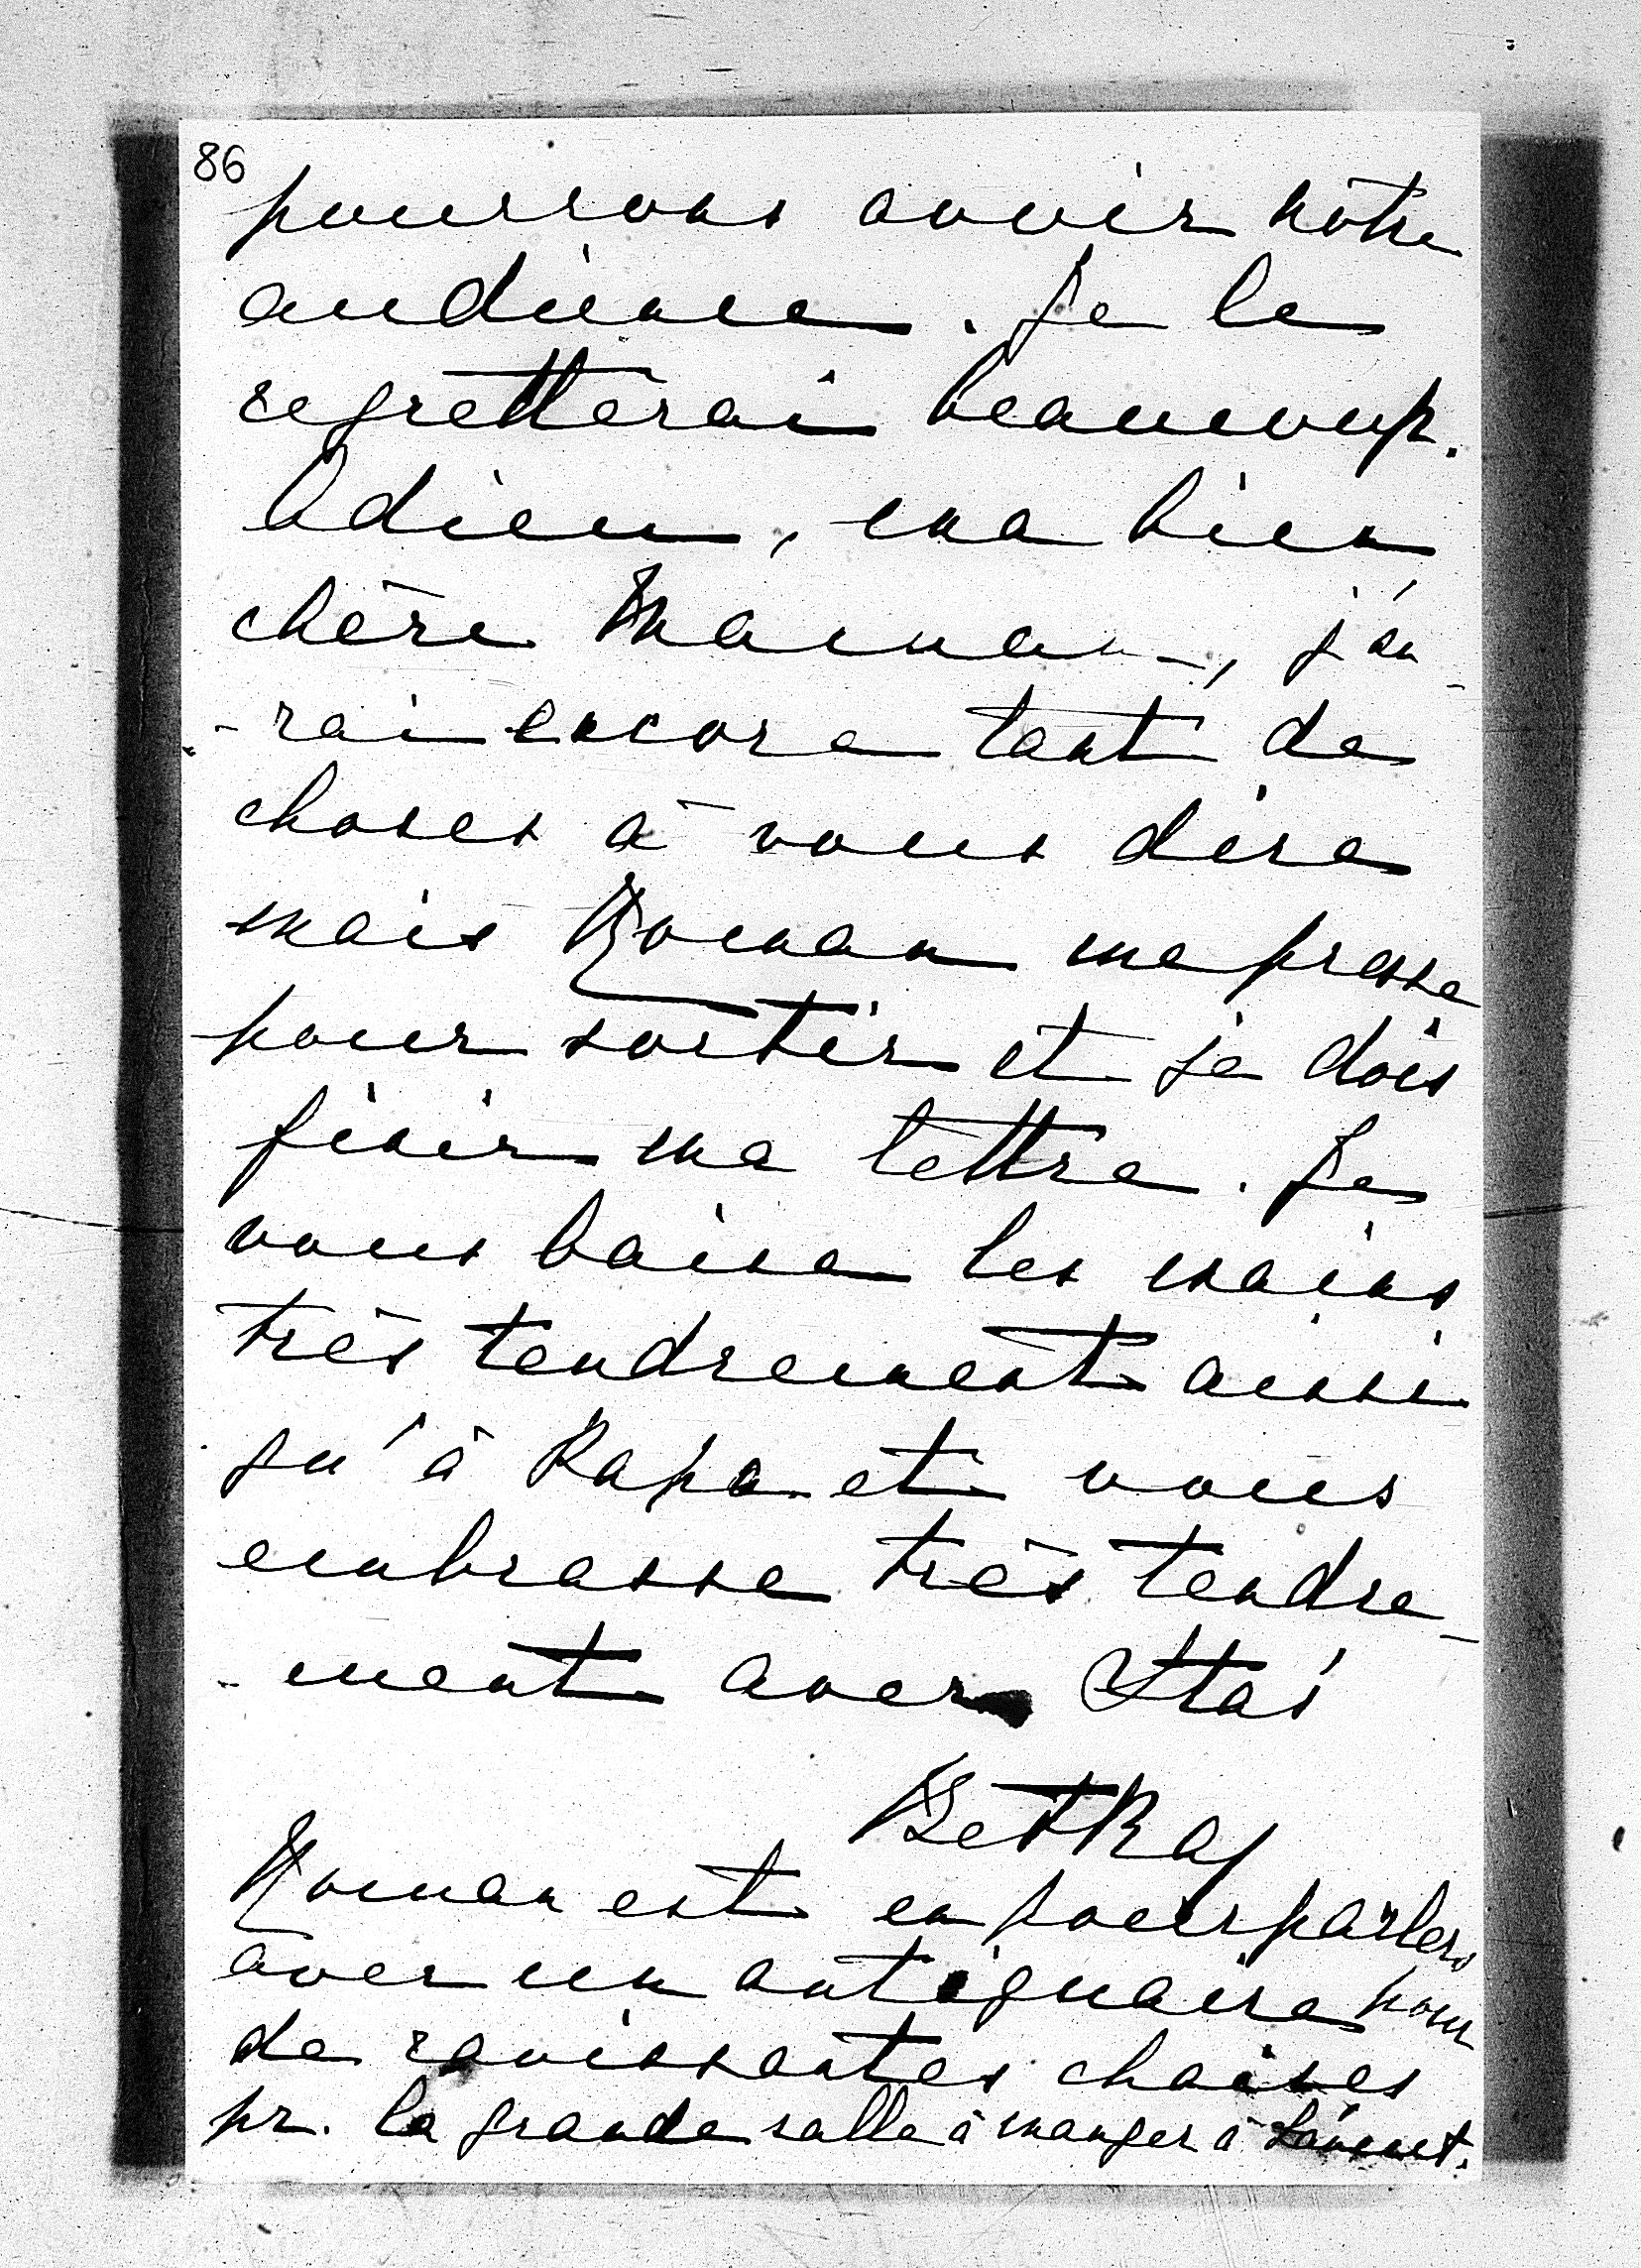 86
pourrons avoir notre
audience. Je le
regretterai beaucoup.
Adieu, ma bien
chère Maman, j'au-
-rai encore tant de
choses à vous dire
mais Roman me presse
pour sortir et je dois
finir ma lettre. Je
vous baise les mains
très tendrement ainsi
qu'à Papa et vous
embrasse très tendre-
-ment avec Staś
BetKa
Roman est en pourparlers
avec un antiquaire pour
de ravissantes chaises
pr. la grande salle à manger à Łańcut.